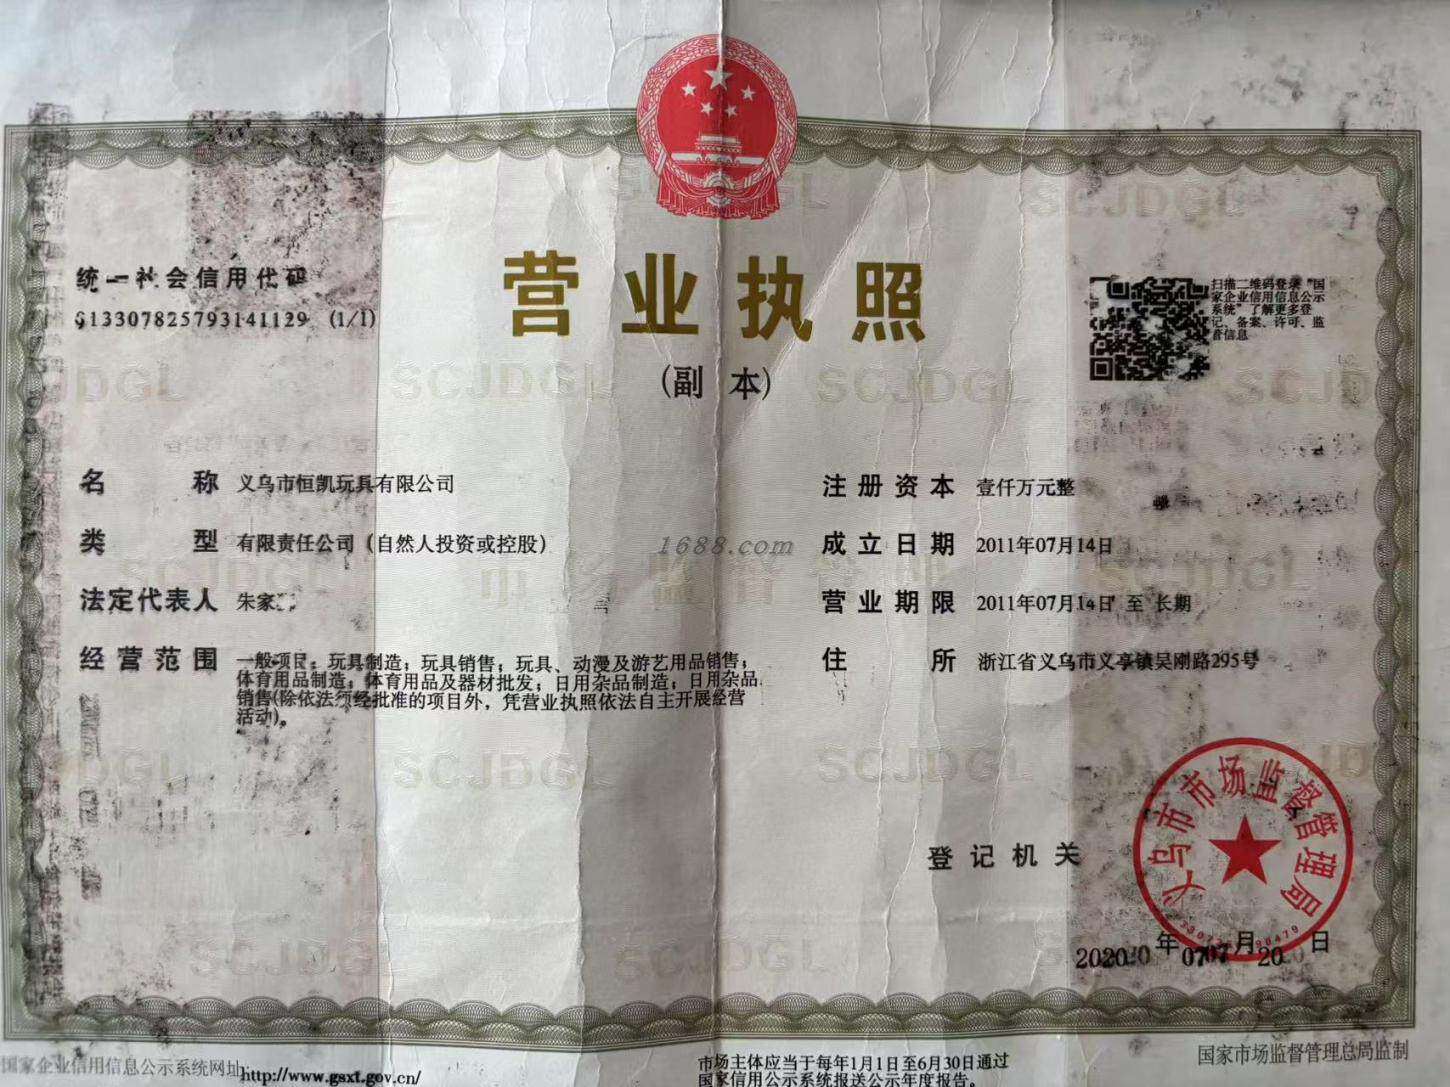 统一社会信用代码
913307825793141129 (1/1)
营业执照
(副 本)
扫描二维码登录"国
家企业信用信息公示
系统"了解更多登
记、备案、许可、监
管信息
名 称 义乌市恒凯玩具有限公司
类 型 有限责任公司（自然人投资或控股）
法定代表人 朱家
经营范围 一般项目：玩具制造；玩具销售；玩具、动漫及游艺用品销售；
体育用品制造；体育用品及器材批发；日用杂品制造；日用杂品
销售(除依法须经批准的项目外，凭营业执照依法自主开展经营
活动)。
注册资本 壹仟万元整
成立日期 2011年07月14日
营业期限 2011年07月14日 至 长期
住 所 浙江省义乌市义亭镇吴刚路295号
1688.com
市场监督管理
SCJDGL
登记机关
义乌市市场监督管理局
2020 年 07 月 20 日
国家企业信用信息公示系统网址
http://www.gsxt.gov.cn/
市场主体应当于每年1月1日至6月30日通过
国家信用公示系统报送公示年度报告。
国家市场监督管理总局监制